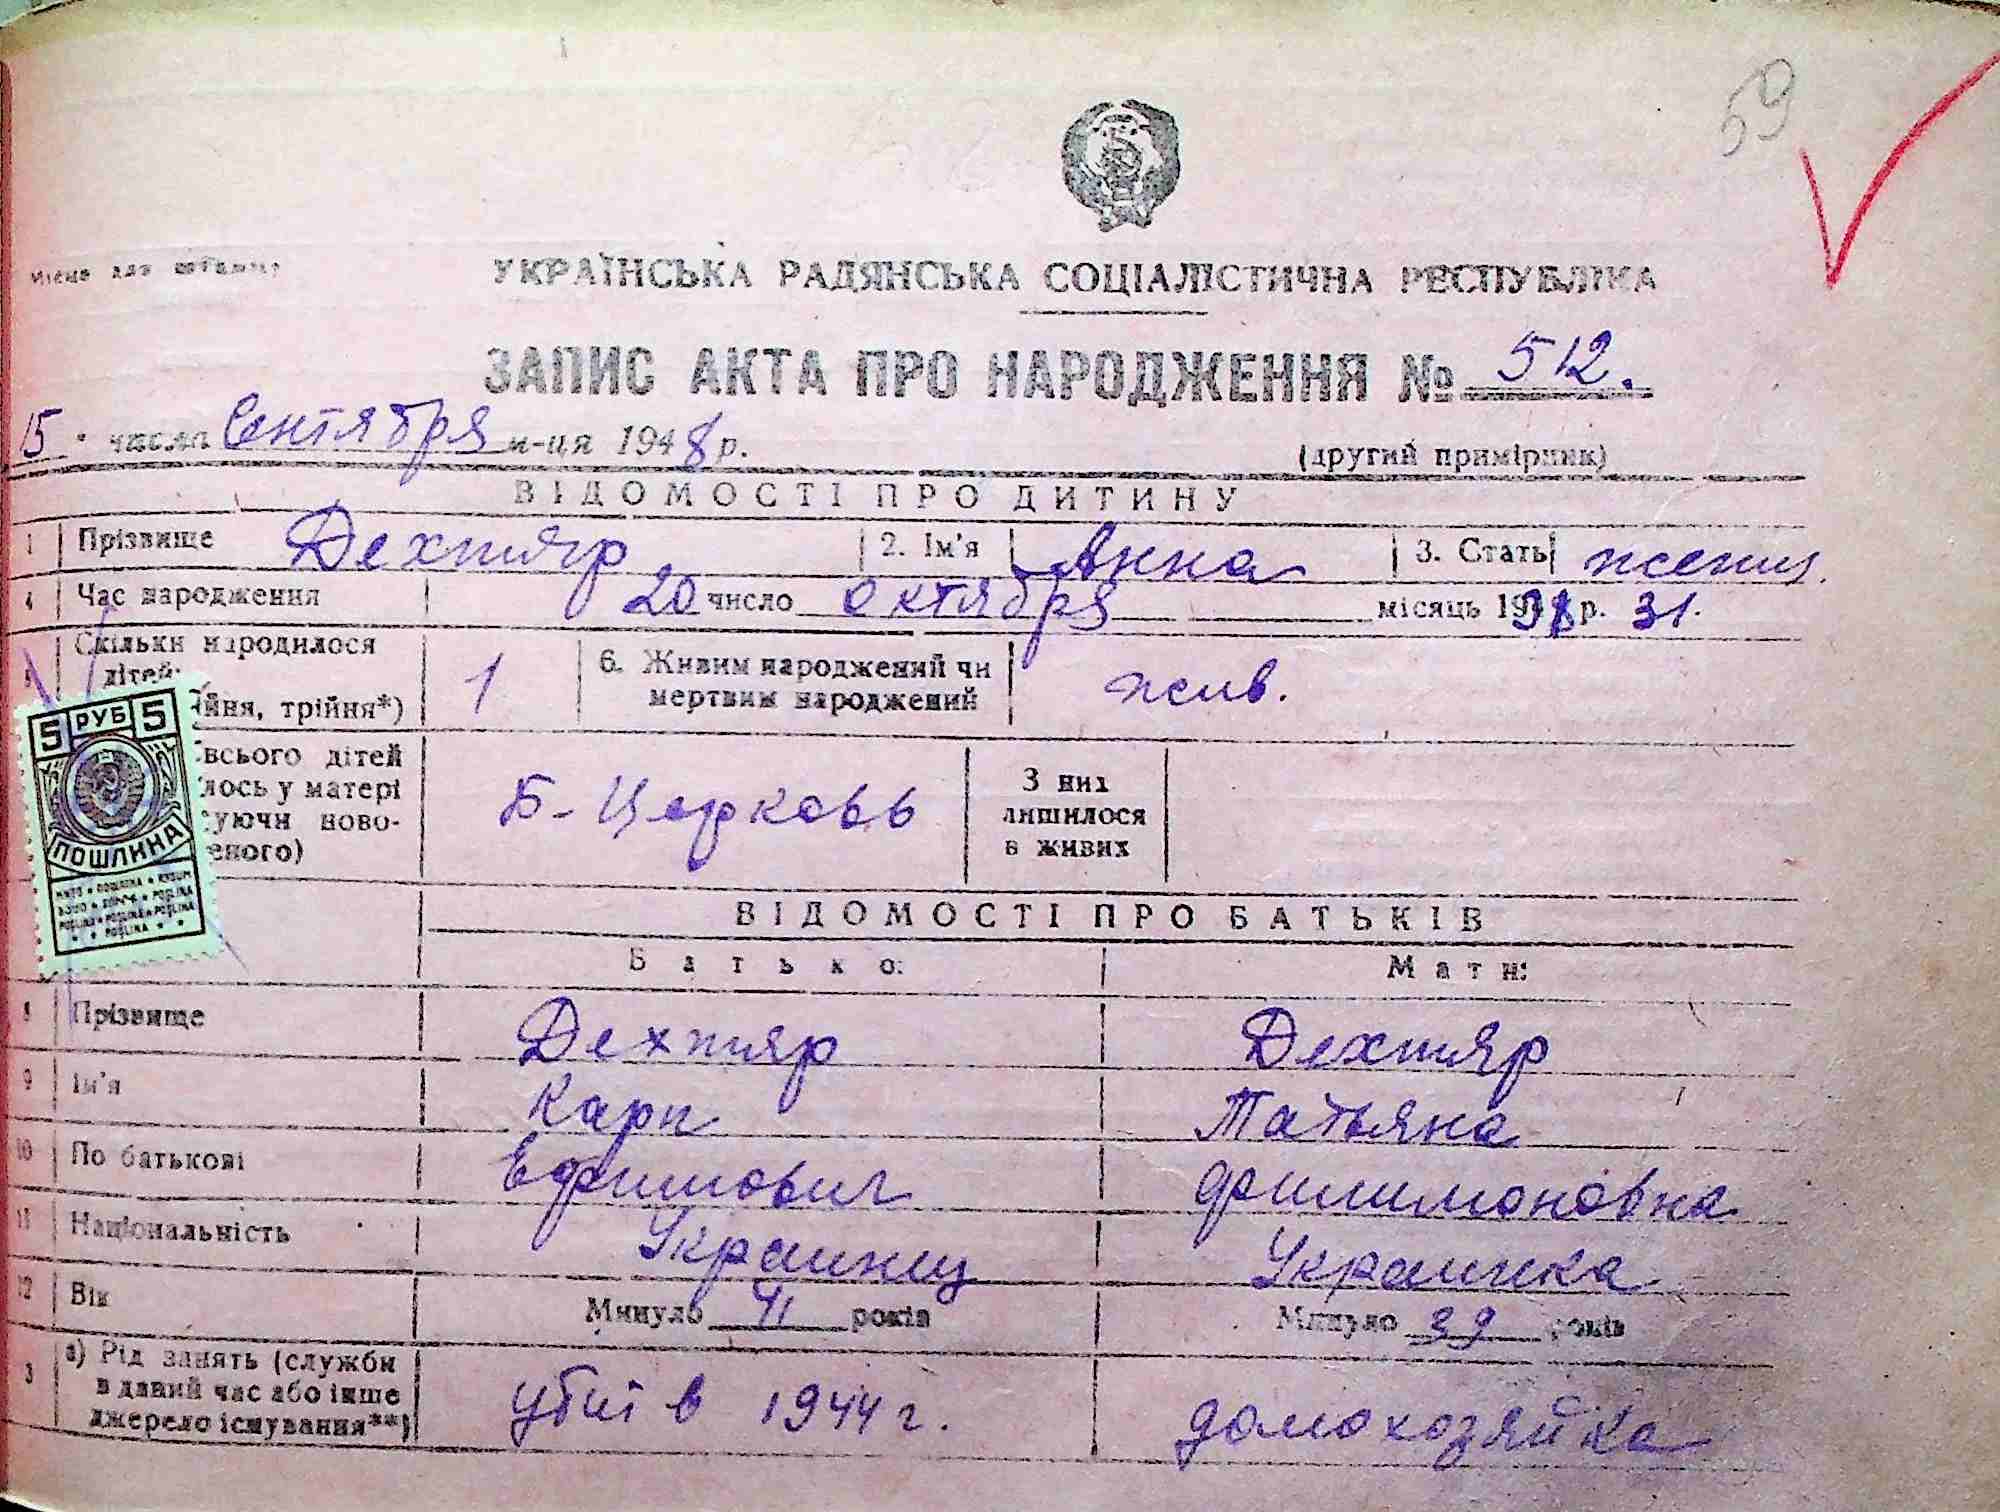 59
Місце для штампу
УКРАЇНСЬКА РАДЯНСЬКА СОЦІАЛІСТИЧНА РЕСПУБЛІКА
ЗАПИС АКТА ПРО НАРОДЖЕННЯ № 512.
15 числа Сентября м-ця 1948 р.
(другий примірник)
ВІДОМОСТІ ПРО ДИТИНУ
1 Прізвище Дехтяр 2. Ім'я Анна 3. Стать женщ.
4 Час народження 20 число октября місяць 19 р. 31.
Скільки народилося дітей: йня, трійня*) 1 6. Живим народжений чи мертвим народжений жив.
всього дітей лось у матері уючи ново- еного) Б-Церковь З них лишилося в живих
5 РУБ 5
ПОШЛИНА
ВІДОМОСТІ ПРО БАТЬКІВ
Батько: Мати:
8 Прізвище Дехтяр Дехтяр
9 Ім'я Карп Татьяна
10 По батькові Ефимович Филимоновна
11 Національність Украинец Украинка
12 Вік Минуло 41 років Минуло 39 років
3 а) Рід занять (служби в даний час або інше джерело існування**) убит в 1944 г. домохозяйка